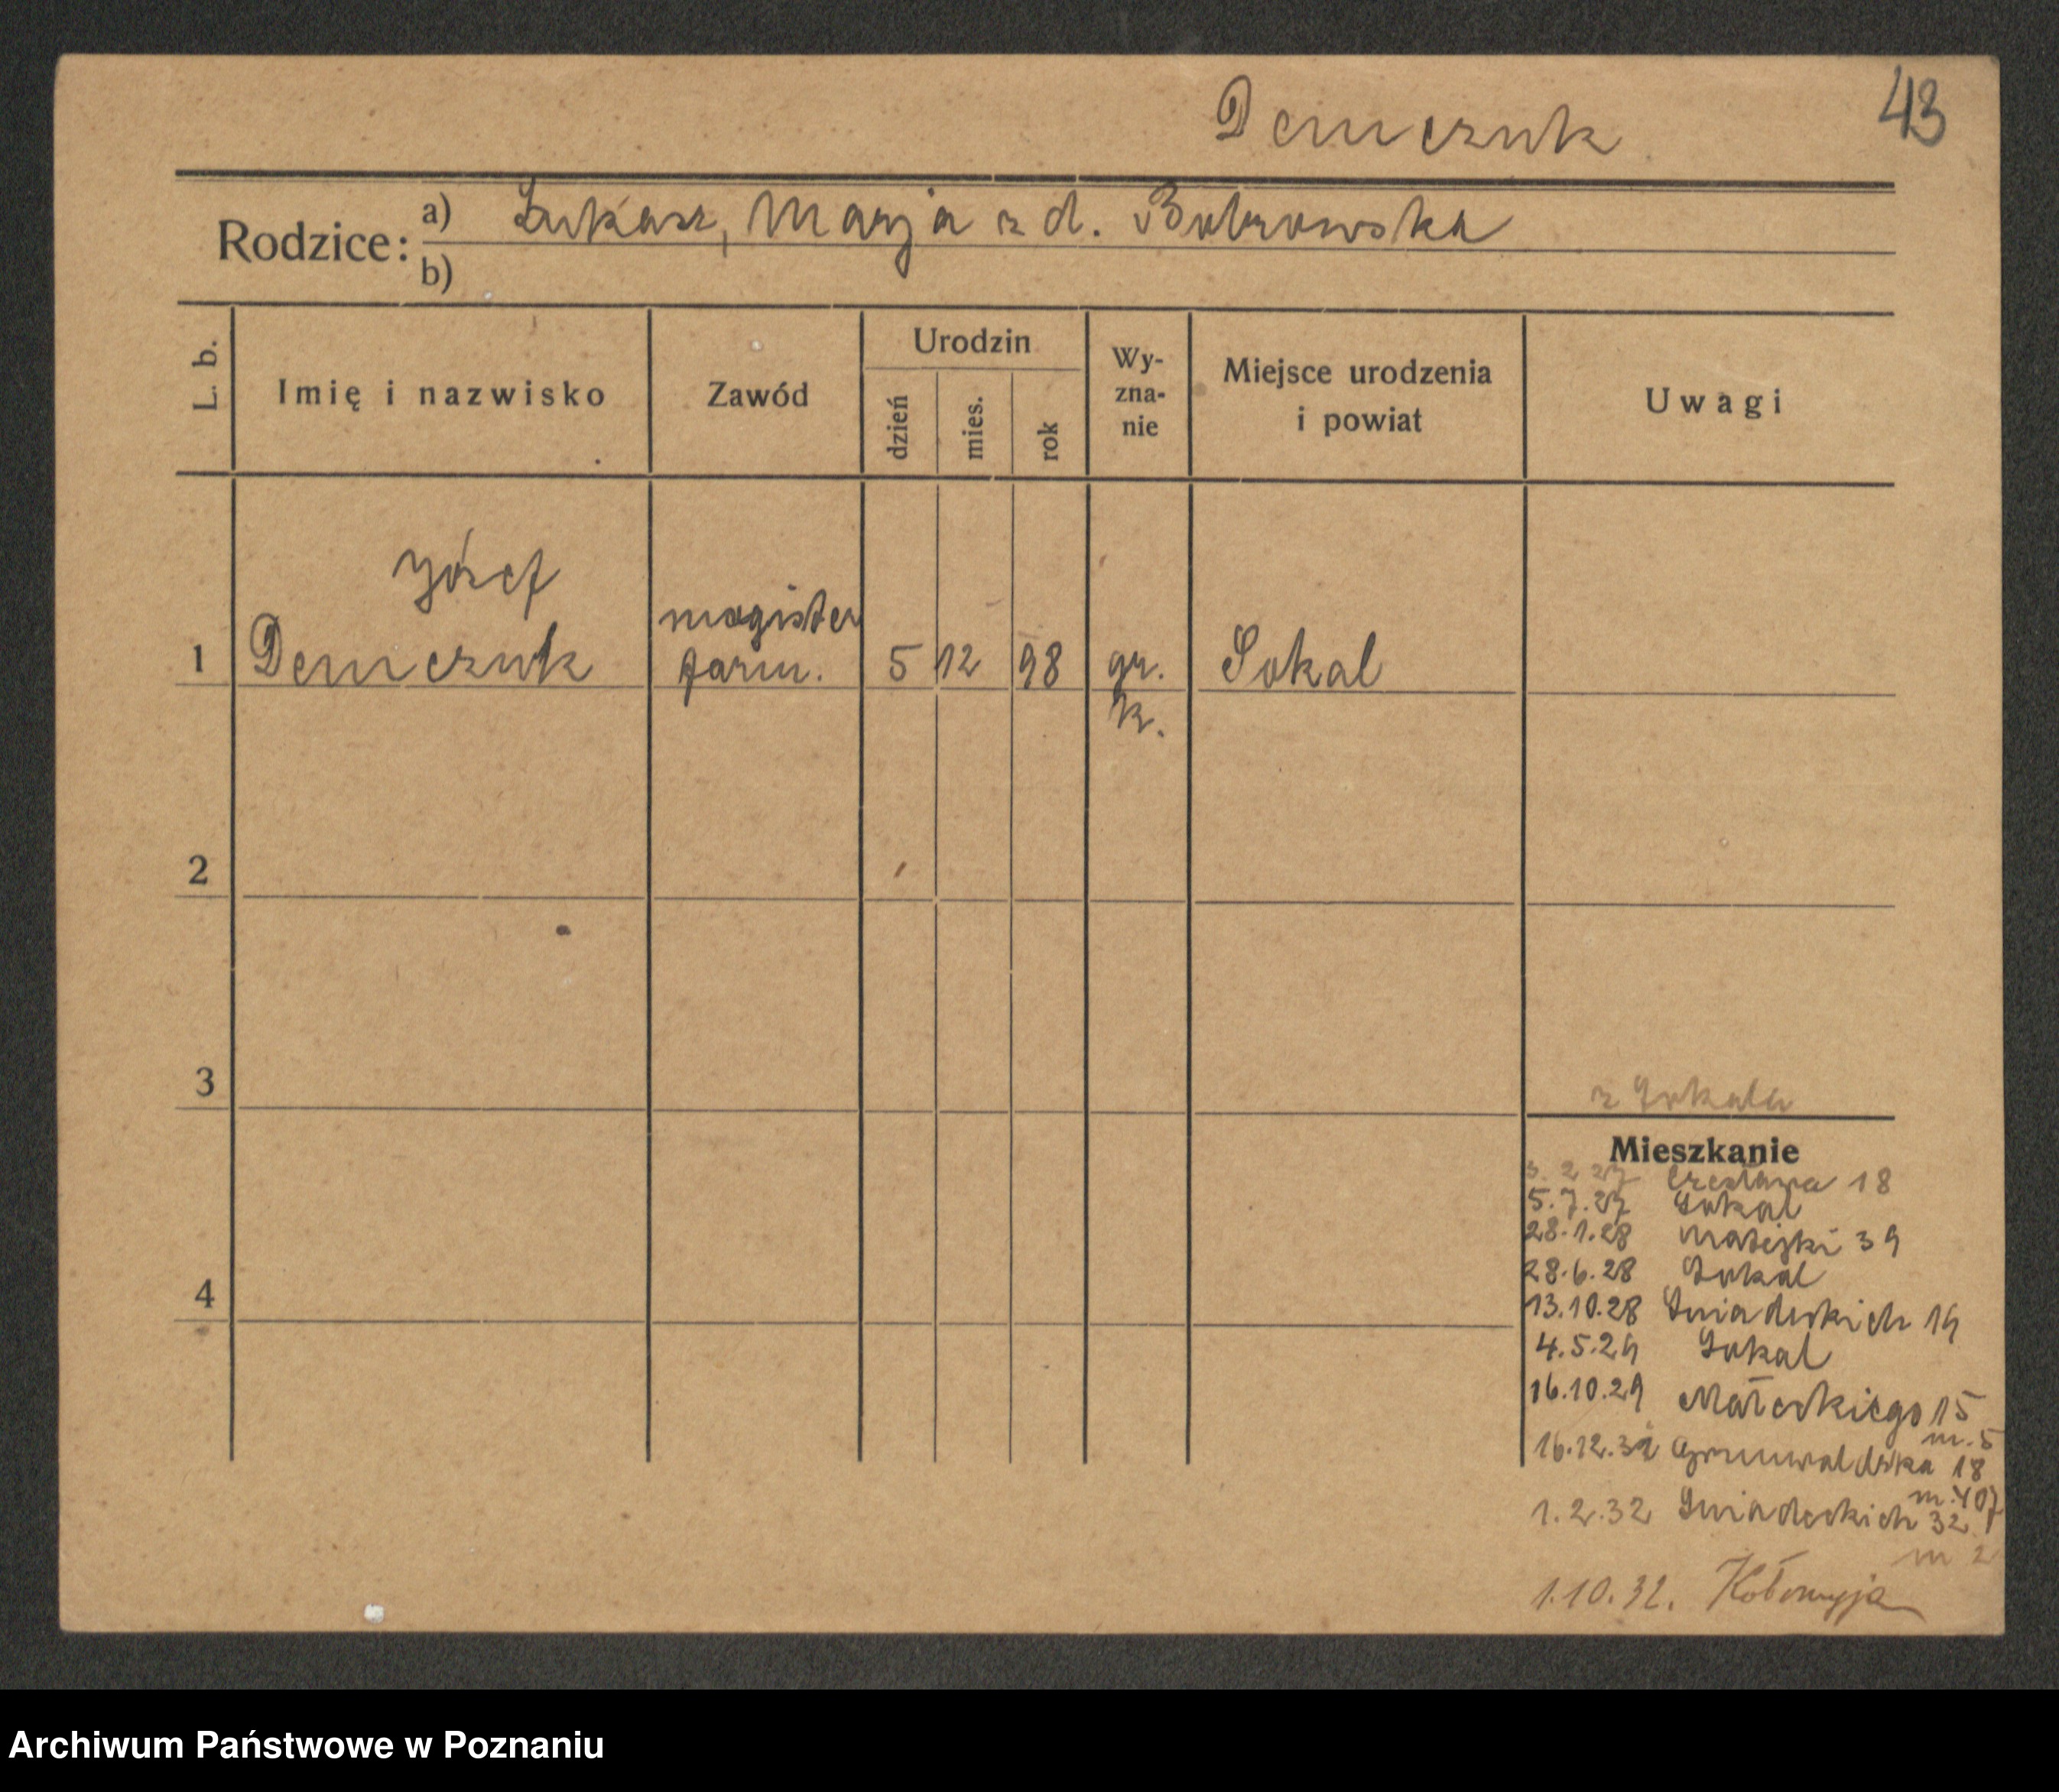 Demczuk
43
Rodzice: a) Łukasz, Marja z d. Bobrowska
b)
L. b.
Imię i nazwisko
Zawód
Urodzin
dzień
mies.
rok
Wy-
zna-
nie
Miejsce urodzenia
i powiat
Uwagi
Józef
magister
1 Demczuk farm. 5 12 98 gr. Sokal
k.
2
3
z Sokala
Mieszkanie
3. 2 27 Czesława 18
5.7.27 Sokal
28.1.28 Matejki 39
28.6.28 Sokal
4
13.10.28 Śniadeckich 19
4.5.29 Sokal
16.10.29 Małeckiego 15
m. 5
16.12. Grunwaldzka 18
m.
1.2.32 Śniadeckich 32
m 2
1.10.32. Kołomyja
Archiwum Państwowe w Poznaniu